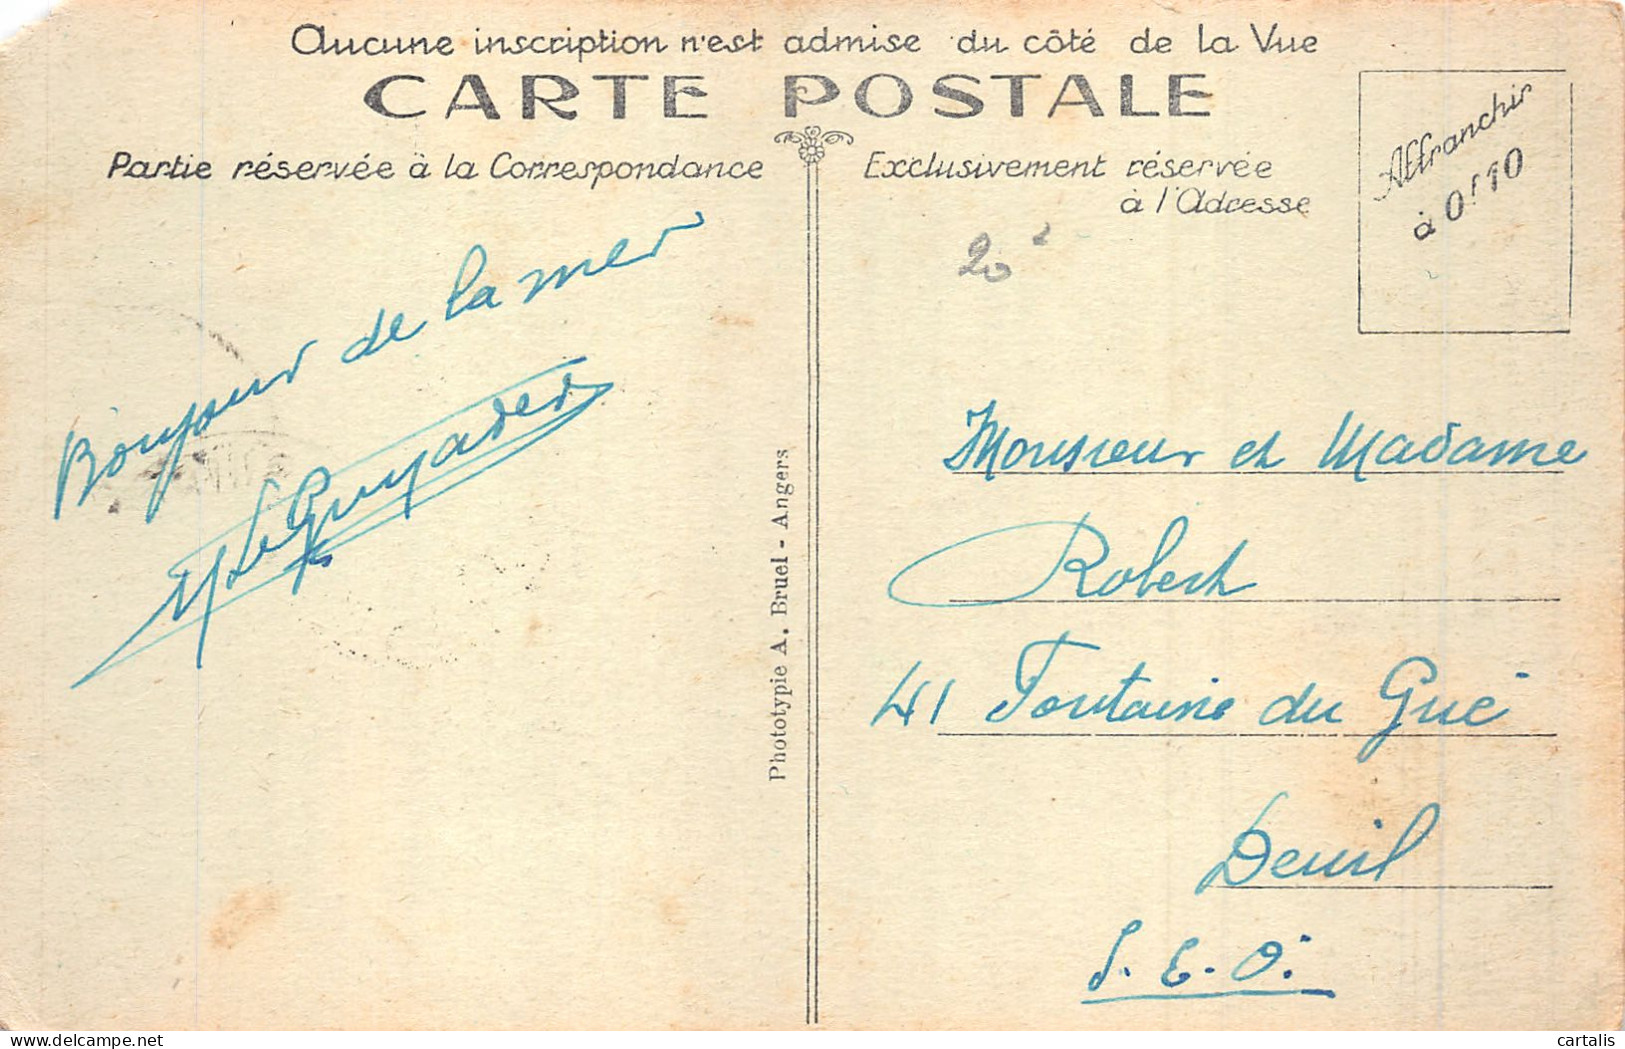 Aucune inscription n'est admise du côté de la Vue
CARTE POSTALE
Partie réservée à la Correspondance
Exclusivement réservée
à l'Adresse
Affranchir
à 0f10
20
Bonjour de la mer
M Le Guyader
Phototypie A. Bruel - Angers
Monsieur et Madame
Robert
41 Fontaine du Gué
Deuil
S. E. O.
cartalis